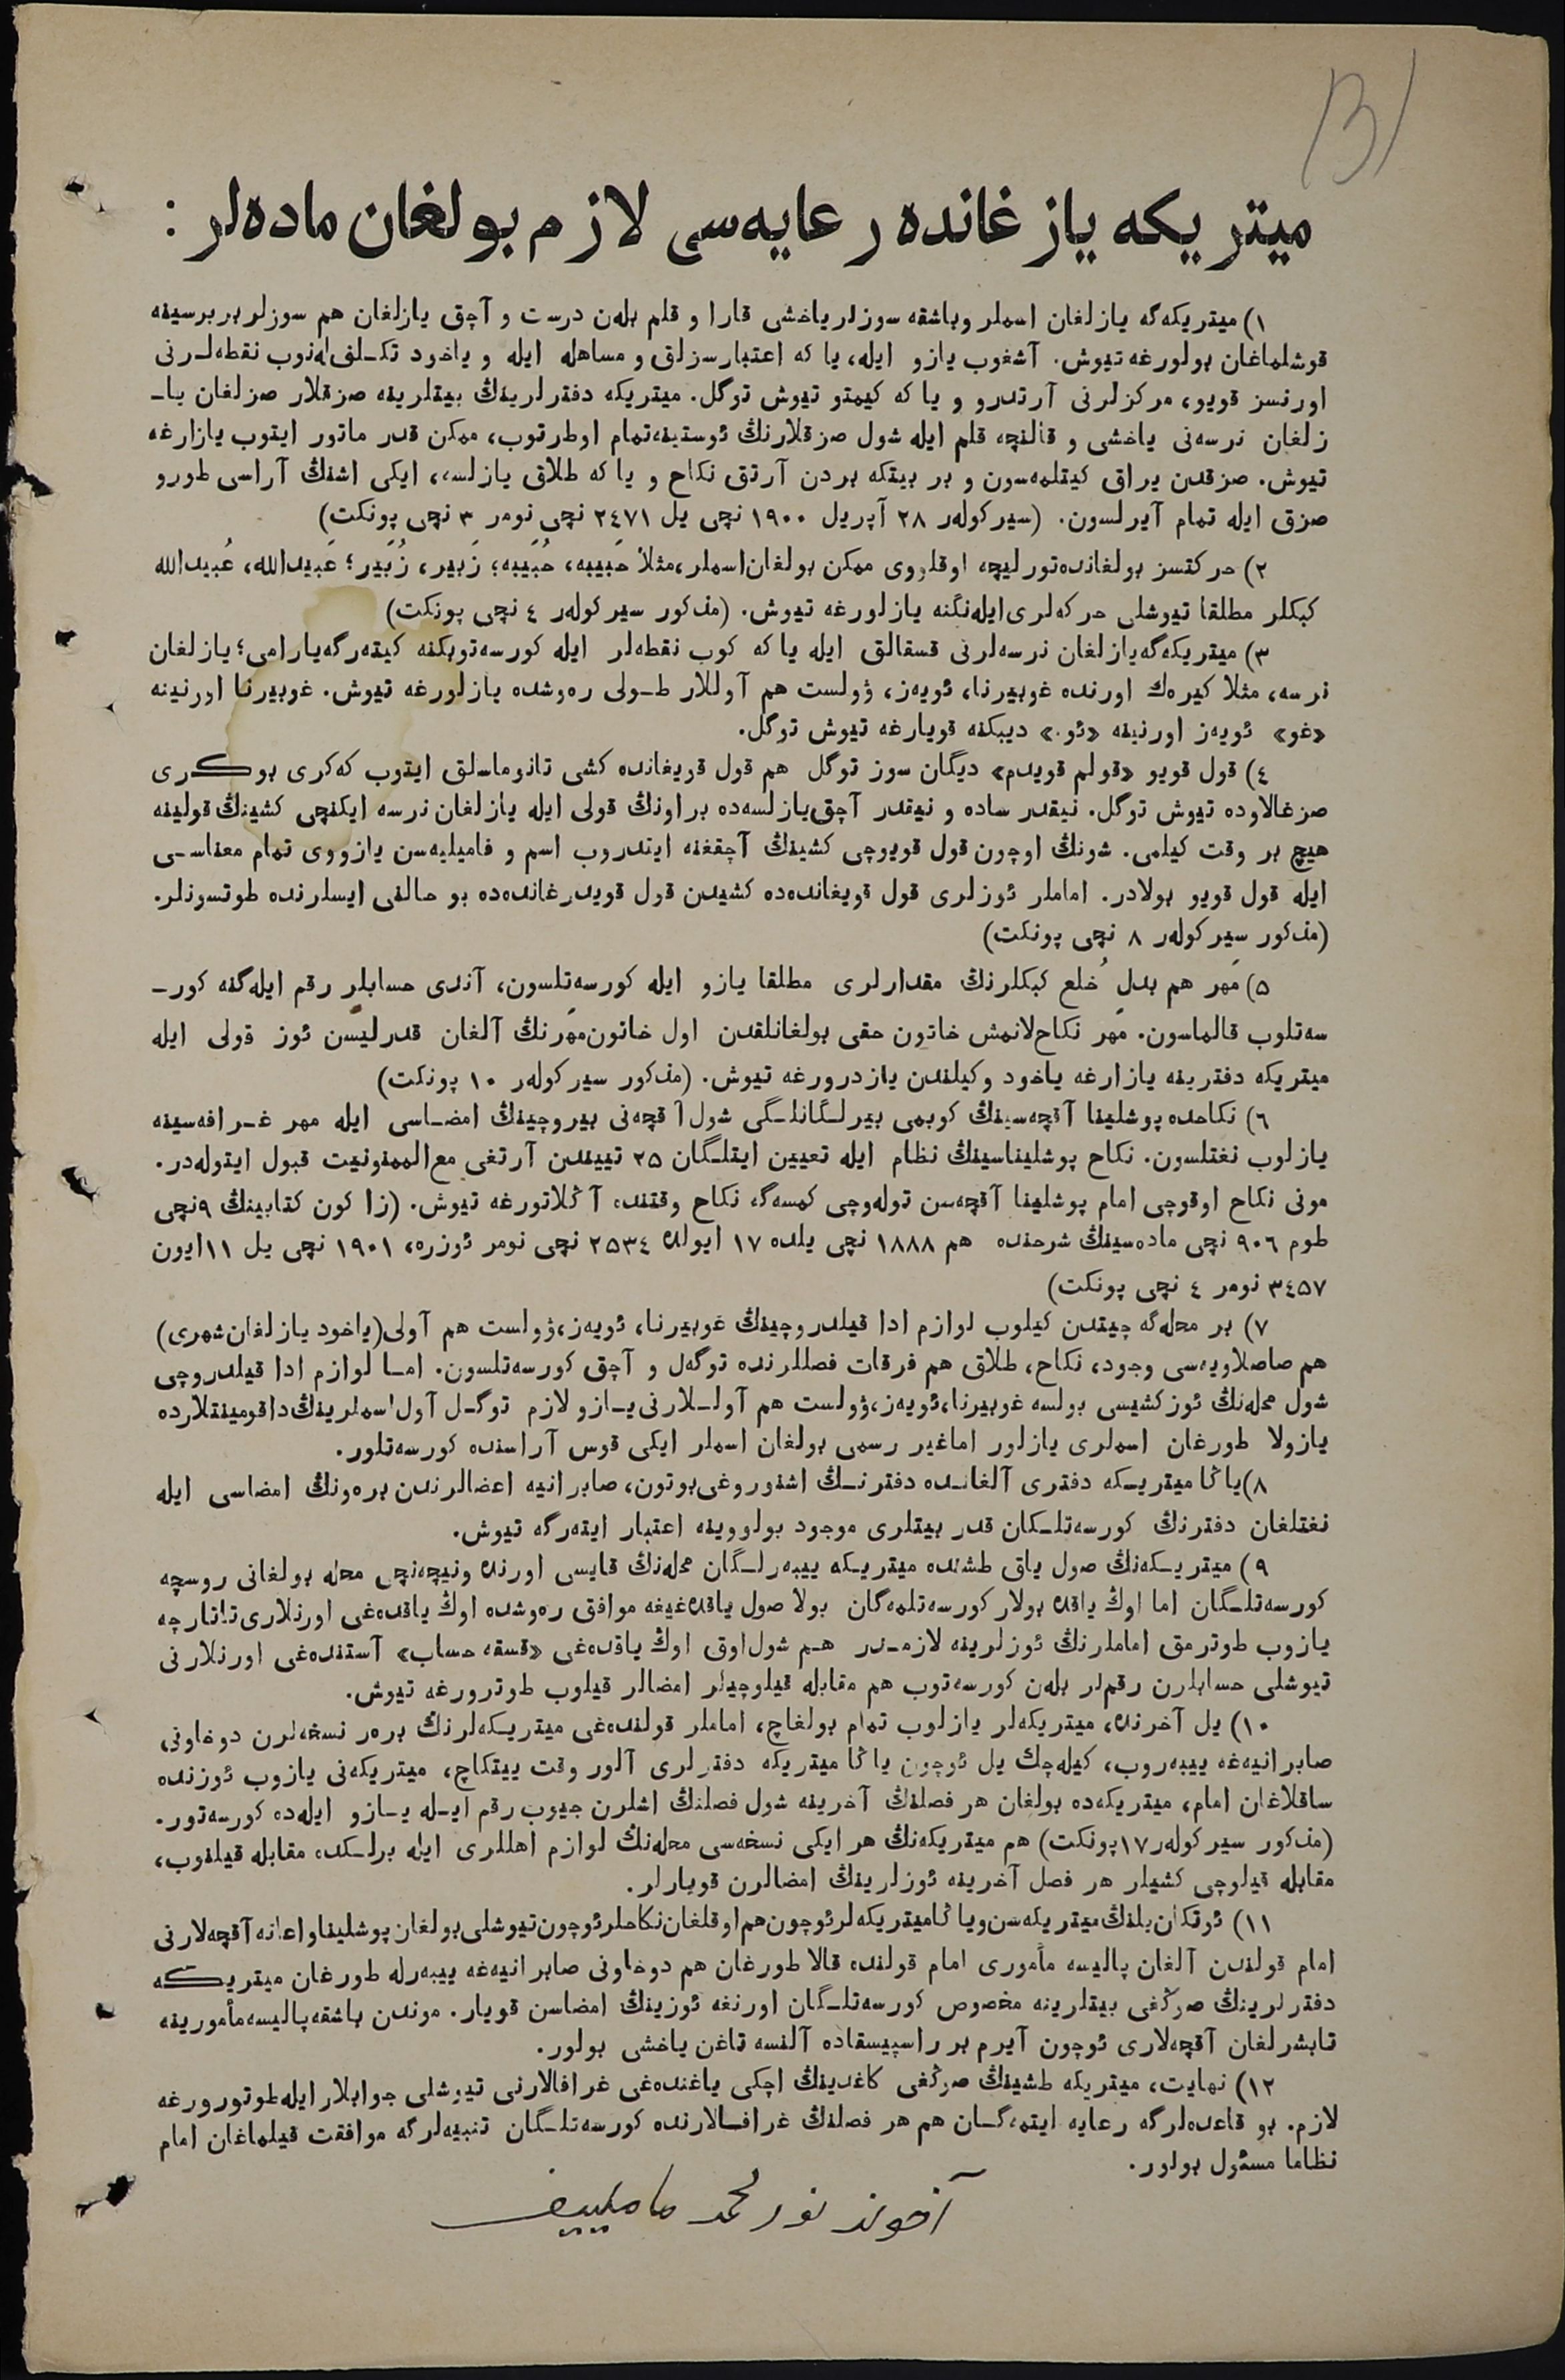 131
میتریکه یازغانده رعایه‌سی لازم بولغان ماده‌لر :
١) میتریکه‌گه یازلغان اسملر وباشقه سوزلر یاخشی قارا و قلم بله‌ن درست و آچق یازلغان هم سوزلر بربرسینه
قوشلماغان بولورغه تیوش. آشغوب یازو ایله، یا که اعتبارسزلق و مساهله ایله و یاخود تکـلفله‌نوب نقطه‌لـرنی
اورنسز قویو، مرکزلرنی آرتدرو و یا که کیمتو تیوش توگل. میتریکه دفترلرینڭ بیتلرینه صزقلار صزلغان یاـ
زلغان نرسه‌نی یاخشی و قالنچه قلم ایله شول صزقلارنڭ ئوستینه تمام اوطرتوب، ممکن قدر ماتور ایتوب یازارغه
تیوش. صزقدن یراق کیتلمه‌سون و بر بیتکه بردن آرتق نکاح و یا که طلاق یازلسه، ایکی اشنڭ آراسی طورو
صزق ایله تمام آیرلسون. (سیرکوله‌ر ٢٨ آپریل ١٩٠٠ نچی یل ٢٤٧١ نچی نومر ٣ نچی پونکت)
٢) حرکتسز بولغانده تورلیچه اوقلووی ممکن بولغان اسملر، مثلا حَبیبه، حُبَیبه؛ زَبیر، زُبَیر؛ عَبیدالله، عُبیدالله
کبکلر مطلقا تیوشلی حرکه‌لری ایله‌نگنه یازلورغه تیوش. (مذکور سیرکوله‌ر ٤ نچی پونکت)
٣) میتریکه‌گه یازلغان نرسه‌لرنی قسقالق ایله یا که کوب نقطه‌لر ایله کورسه‌توبکنه کیته‌رگه یارامی؛ یازلغان
نرسه، مثلا کیره‌ك اورنده غوبیرنا، ئویه‌ز، ۋولست هم آوللار طـولی ره‌وشده یازلورغه تیوش. غوبیرنا اورنینه
«غو» ئویه‌ز اورنینه «ئو.» دیبکنه قویارغه تیوش توگل.
٤) قول قویو «قولم قویدم» دیگان سوز توگل هم قول قویغانده کشی تانوماسلق ایتوب که‌کری بوکـری
صزغالاوده تیوش توگل. نیقدر ساده و نیقدر آچق یازلسه‌ده براونڭ قولی ایله یازلغان نرسه ایکنچی کشینڭ قولینه
هیچ بر وقت کیلمی. شونڭ اوچون قول قویوچی کشینڭ آچقغنه ایتدروب اسم و فامیلیه‌سن یازووی تمام معناسـی
ایله قول قویو بولادر. اماملر ئوزلری قول قویغانده‌ده کشیدن قول قویدرغانده‌ده بو حالنی ایسلرنده طوتسونلر.
(مذکور سیرکوله‌ر ٨ نچی پونکت)
٥) مَهر هم بدل خُلع کبکلرنڭ مقدارلری مطلقا یازو ایله کورسه‌تلسون، آندی حسابلر رقم ایله‌گنه کورـ
سه‌تلوب قالماسون. مَهر نکاح‌لانمش خاتون حقی بولغانلقدن اول خاتون مَهرنڭ آلغان قدرلیسن ئوز قولی ایله
میتریکه دفترینه یازارغه یاخود وکیلندن یازدرورغه تیوش. (مذکور سیرکوله‌ر ١٠ پونکت)
٦) نکاحده پوشلینا آقچه‌سینڭ کوبمی بیرلـگانلـگی شول آقچه‌نی بیروچینڭ امضـاسی ایله مهر غـرافه‌سینه
یازلوب نغتلسون. نکاح پوشلیناسینڭ نظام ایله تعیین ایتلـگان ٢٥ تییندن آرتغی مع‌الممنونیت قبول ایتوله‌در.
مونی نکاح اوقوچی امام پوشلینا آقچه‌سن توله‌وچی کمسه‌گه نکاح وقتنده آڭلاتورغه تیوش. (زاکون کتابینڭ ٩نچی
طوم ٩٠٦ نچی ماده‌سینڭ شرحنده هم ١٨٨٨ نچی یلده ١٧ ایولده ٢٥٣٤ نچی نومر ئوزره، ١٩٠١ نچی یل ١١ایون
٣٤٥٧ نومر ٤ نچی پونکت)
٧) بر محله‌گه چیتدن کیلوب لوازم ادا قیلدروچینڭ غوبیرنا، ئویه‌ز، ۋولست هم آولی (یاخود یازلغان شهری)
هم صاصلاویه‌سی وجود، نکاح، طلاق هم فرقات فصللرنده توگه‌ل و آچق کورسه‌تلسون. امـا لوازم ادا قیلدروچی
شول محله‌نڭ ئوز کشیسی بولسه غوبیرنا، ئویه‌ز، ۋولست هم آولـلارنی یـازو لازم توگـل آول اسملرینڭ داقومینتلارده
یازولا طورغان اسملری یازلور اماغیر رسمی بولغان اسملر ایکی قوس آراسنده کورسه‌تلور.
٨) یاڭا میتریـکه دفتری آلغانـده دفترنـڭ اشنوروغی بوتون، صابرانیه اعضالرندن بره‌ونڭ امضاسی ایله
نغتلغان دفترنڭ کورسه‌تلـکان قدر بیتلری موجود بولووینه اعتبار ایته‌رگه تیوش.
٩) میتریـکه‌نڭ صول یاق طشنده میتریـکه ییبه‌رلـگان محله‌نڭ قایسی اورنده ونیچه‌نچی محله بولغانی روسچه
کورسه‌تلـگان اما اوڭ یاقده بولار کورسه‌تلمه‌گان بولا صول یاقده‌غیغه موافق ره‌وشده اوڭ یاقده‌غی اورنلاری تاتارچه
یازوب طوترمق اماملرنڭ ئوزلرینه لازمـدر هـم شول اوق اوڭ یاقده‌غی «قسقه حساب» آستنده‌غی اورنلارنی
تیوشلی حسابلرن رقم‌لر بله‌ن کورسه‌توب هم مقابله قیلوچیلر امضالر قیلوب طوترورغه تیوش.
١٠) یل آخرنده، میتریکه‌لر یازلوب تمام بولغاچ، اماملر قولنده‌غی میتریـکه‌لرنڭ بره‌ر نسخه‌لرن دوخاونی
صابرانیه‌غه ییبه‌روب، کیله‌چك یل ئوچون یاڭا میتریکه دفترلری آلور وقت ییتکاچ، میتریکه‌نی یازوب ئوزنده
ساقلاغان امام، میتریکه‌ده بولغان هر فصلنڭ آخرینه شول فصلنڭ اشلرن جیوب رقم ایـله یـازو ایله‌ده کورسه‌تور.
(مذکور سیرکوله‌ر ١٧پونکت) هم میتریکه‌نڭ هر ایکی نسخه‌سی محله‌نڭ لوازم اهللری ایله برلـکده مقابله قیلنوب،
مقابله قیلوچی کشیلر هر فصل آخرینه ئوزلرینڭ امضالرن قویارلر.
١١) ئوتکان یلنڭ میتریکه‌سن و یاڭا میتریکه‌لر ئوچون هم اوقلغان نکاحلر ئوچون تیوشلی بولغان پوشلینا و اعانه آقچه‌لارنی
امام قولندن آلغان پالیسه مأموری امام قولنده قالا طورغان هم دوخاونی صابرانیه‌غه ییبه‌رله طورغان میتریـکه
دفترلرینڭ صوڭغی بیتلرینه مخصوص کورسه‌تلـگان اورنغه ئوزینڭ امضاسن قویار. موندن باشقه پالیسه مأمورینه
تابشرلغان آقچه‌لاری ئوچون آیرم بر راسپیسقاده آلنسه تاغن یاخشی بولور.
١٢) نهایت، میتریکه طشینڭ صوڭغی کاغدینڭ اچکی یاغنده‌غی غرافالارنی تیوشلی جوابلار ایله طوتورورغه
لازم. بو قاعده‌لرگه رعایه ایتمه‌گـان هم هر فصلنڭ غرافـالارنده کورسه‌تلـگان تنبیه‌لرگه موافقت قیلماغان امام
نظاما مسئول بولور.
آخوند نورمحمد مامليیف